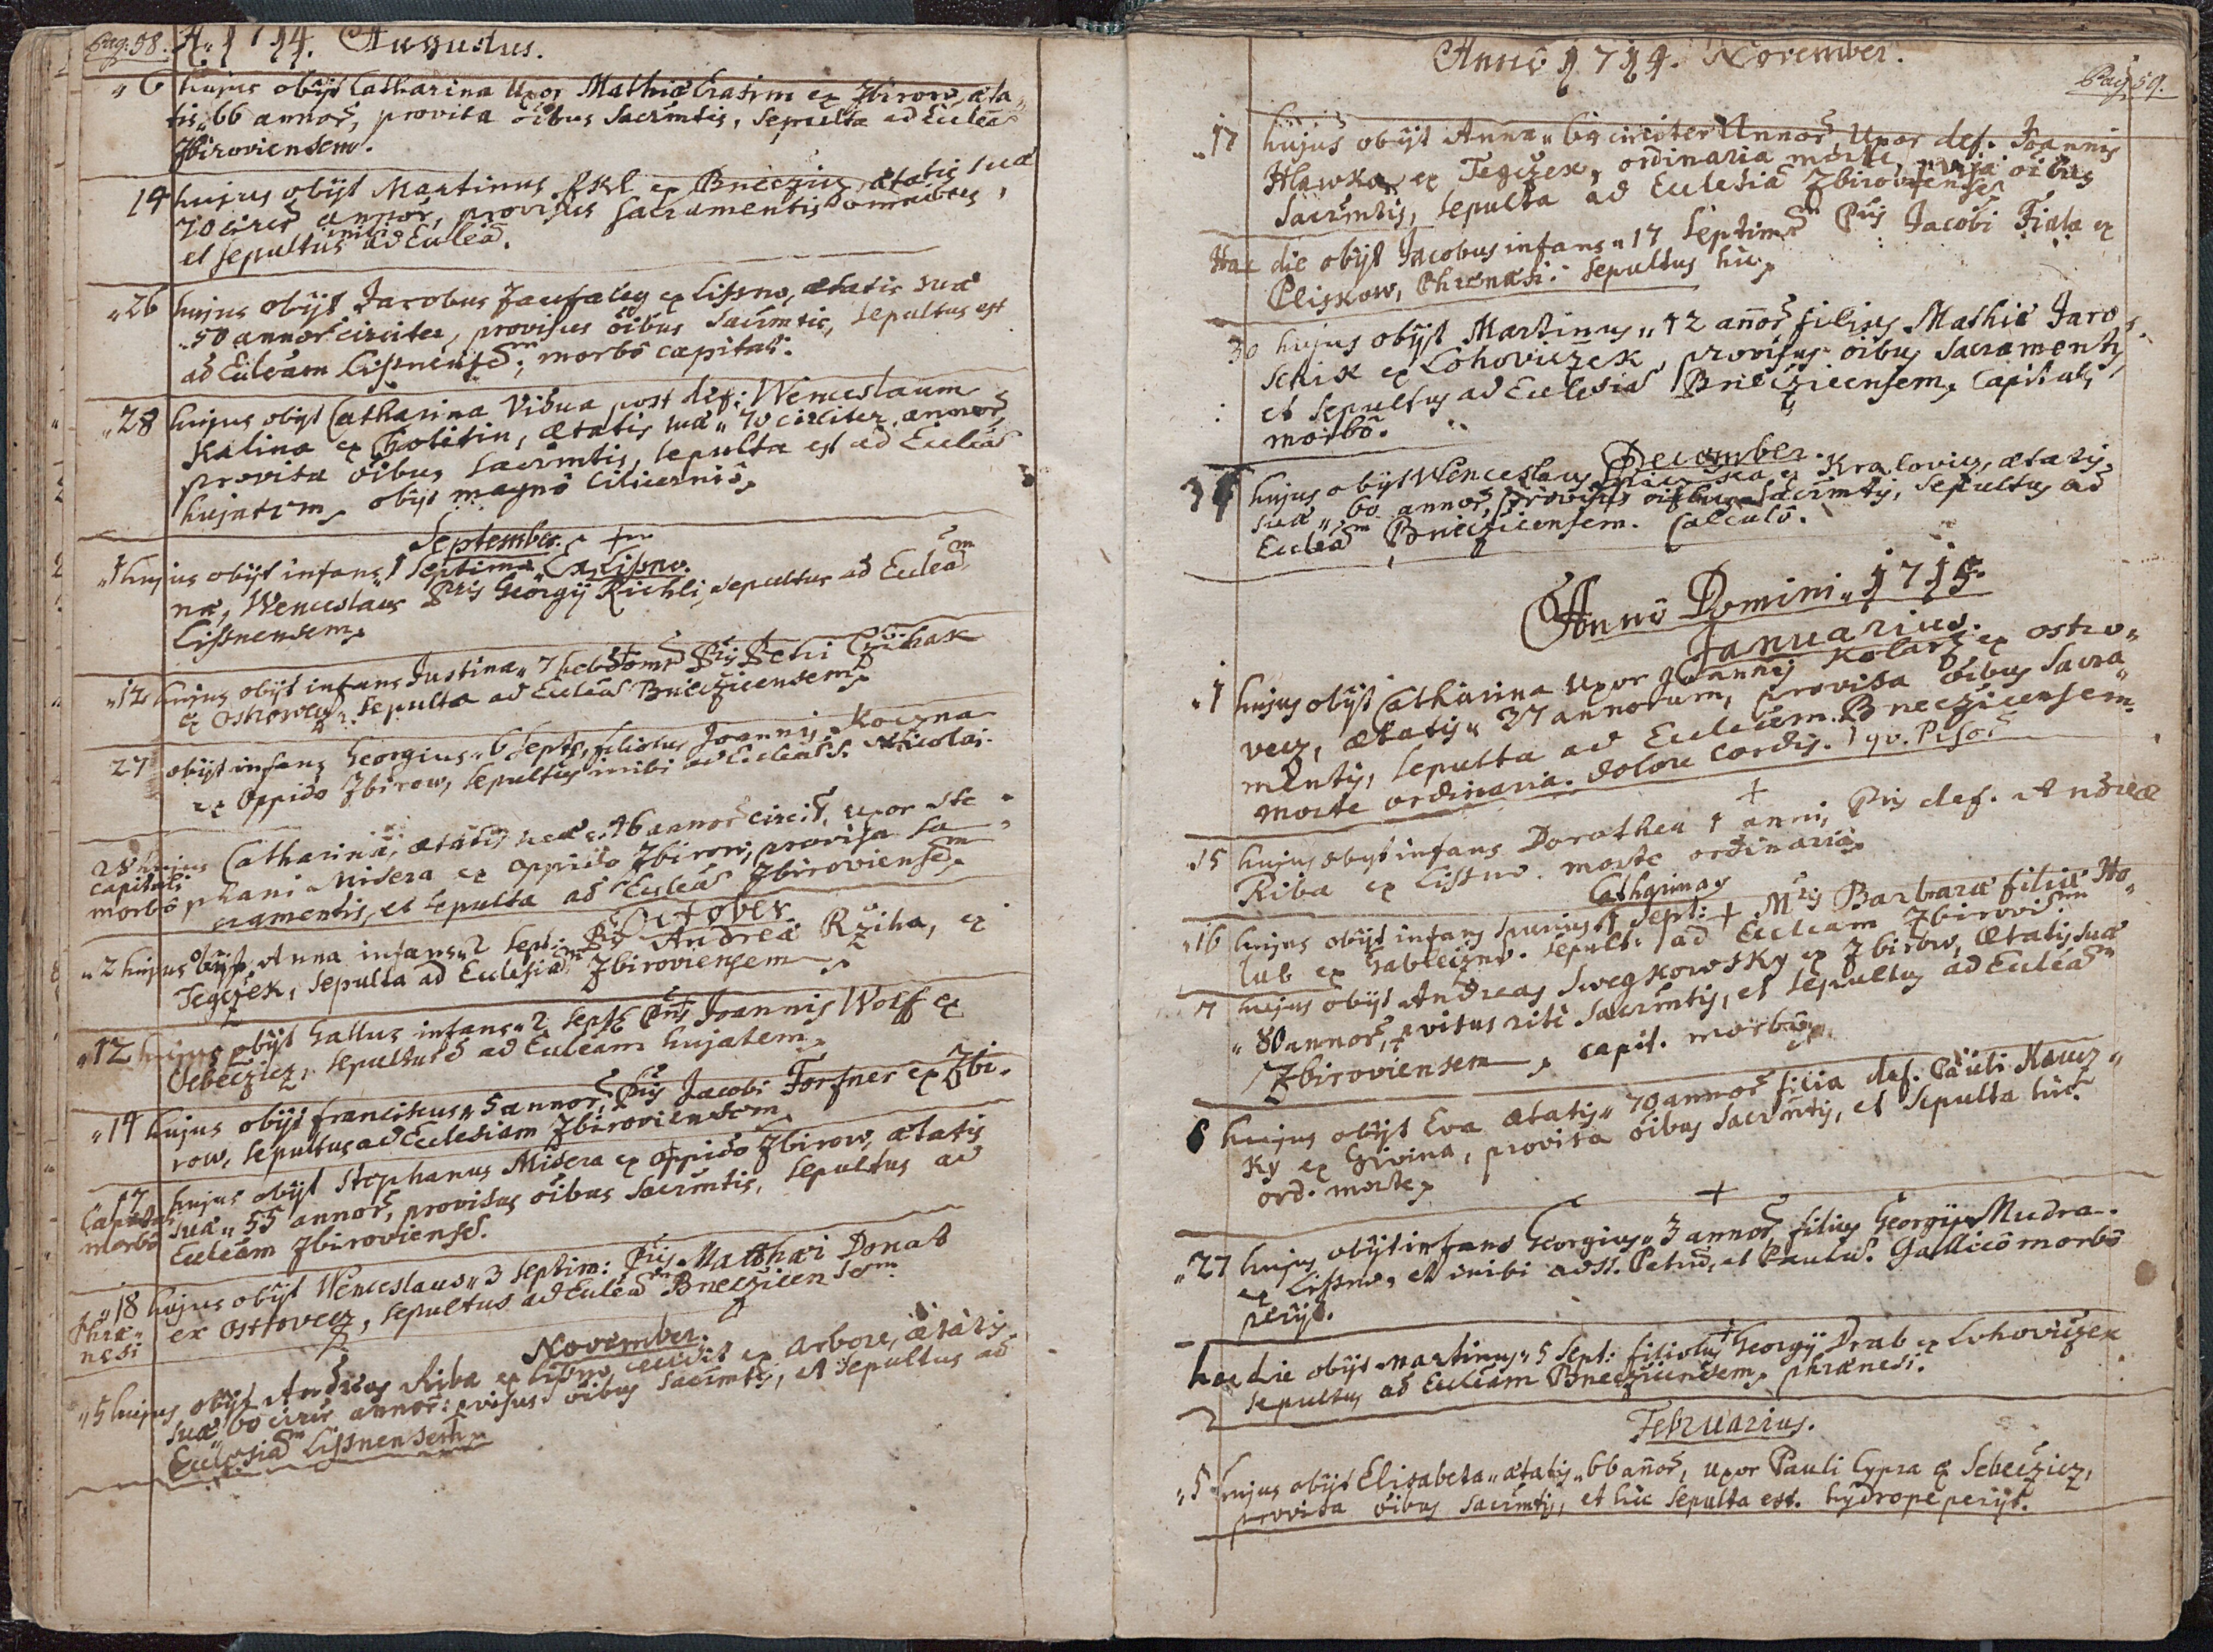 Pag: 58. A. 1714. Augustus.
„6 hujus obijt Catharina Uxor Mathiæ Erasim ex Zbirow, æta„
tis „66 annor, provisa oibus Sacrmtis, Sepulta ad Eccleã
Zbiroviensem.
14 hujus obijt Martinus ex Bneczicz, ætatis suæ
70 circã annor, provisus sacramentis omnibus,
et sepultus inibi ad Eccleã.
„26 hujus obijt Jacobus ex Lissno, ætatis suæ
„50 annor circiter, provisus oibus Sacrmtis, sepultus est
ad Eccleam Lissnensem, morbô capitali.
„28 hujus obijt Catharina Vidua post def: Wenceslaum
Kalina ex Cholitin, ætatis suæ „70 circiter annor,
provisa oibus Sacrmtis, sepulta est ad Eccleã
hujatem, obijt magnô
September.
„1 hujus obijt infans 1 Septima Ex Lissno.
næ, Wenceslaus Pris Georgij Richli, sepultus ad Eccleãm
Lissnensem.
„12 hujus obijt infans Justina „7 hebdom Pris Petri
ex Ostrowecz, sepulta ad Eccleã Bneczicensem.
27 obijt infans Georgius „6 Sept, filiolus Joannis Koczna
ex Oppido Zbirow, sepultus inibi ad Eccleã S. Nicolai.
28 hujus Catharina, ætatis suæ „46 annor circit, uxor Ste„
capitali
morbô phani Misera ex oppido Zbirow, provisa Sa„
cramentis, et sepulta ad Eccleã Zbiroviensem.
October.
„2 hujus obijt Anna infans „2 Sept: Pris Andreæ Rziha, ex
Tegczek, sepulta ad Ecclesiãm Zbiroviensem.
„12 hujus obijt Gallus infans „2 Sept Pris Joannis Wolff ex
Sebeczicz, sepultus ad Eccleam hujatem.
„14 hujus obijt franciscus „5 annor, Pris Jacobi Forsner ex Zbi„
row, sepultus ad Ecclesiam Zbiroviensem.
17 hujus obijt Stephanus Misera ex oppido Zbirow, ætatis
Capitali
morbô suæ „55 annor, provisus oibus Sacrmtis, sepultus ad
Eccleam Zbiroviensẽ.
„18 hujus obijt Wenceslaus „3 Septim: Pris Mathæi Donat
Phræ„
nesi ex Ostrovecz, sepultus ad Eccleãm Bneczicensem
November.
„5 hujus obijt Andreas Riba ex Lissno, cecidit ex arbore, ætatis
suæ 60 circit annor: pvisus oibus Sacrmtis, et sepultus ad
Ecclesiãm Lissnensem
Annô 1714. November.
Pag: 59.
„17 hujus obijt Anna circiter Annor Uxor def. Joannis
Hlawka ex Tegczex, ordinaria morte, pvisa oibus
Sacrmtis, sepulta ad Ecclesiã Zbiroviensẽ.
Hac die obijt Jacobus infans „17 Septim Pris Jacobi Fiala ex
Pliskow, Phrenesi: sepultus hic.
30 hujus obijt Martinus „12 añor filius Mathiæ Jaro„
schik ex Lohoviczek, provisus oibus Sacramentis,
et sepultus ad Ecclesiã Bneczicensem, Capitali
morbô.
December.
hujus obijt Wenceslaus ex Kralovicz, ætatis
suæ „60 annor, provisus oibus Sacrmtis, sepultus ad
Eccleãm Bneczicensem. Calculô.
Annô Domini „1715.
Januarius.
„1 hujus obijt Catharina Uxor Joannis Kolarz ex Ostro„
vecz, ætatis „37 annorum, provisa oibus Sacra„
mentis, sepulta ad Eccleam Bneczicensem.
Morte ordinaria. dolore Cordis.
15 hujus obijt infans Dorothea 1 anni, Pris def. Andreæ
Riba ex Lissno. morte ordinariâ.
Catharina
„16 hujus obijt infans spurius 1 Sept: Mris Barbaræ filiæ Ho„
lub ex Jableczno. sepult: ad Eccleam Zbirovie.
7 hujus obijt Andreas Swegkowsky ex Zbirow, Ætatis suæ
„80 annor, pvisus ritè Sacrmtis, et sepultus ad Eccleãm
Zbiroviensem, capit. morbô.
6 hujus obijt Eva ætatis „70 annor filia def. Pauli Kaucz„
ky ex Grivina, provisa oibus Sacrmtis, et sepulta hic.
ord. morte.
„27 hujus obijt infans Georgius „3 annor, filius Georgij Mudra
ex Lissno, et inibi ad SS. Petrũ, et Paulũ. Gallicô morbô
perijt.
hac die obijt Martinus „5 Sept: filiolus Georgij Drab ex Lohoviczek
sepultus ad Eccleam Bneczicensem, phrænesi.
Februarius.
„5 hujus obijt Elisabeta „ætatis „66 añor, uxor Pauli Cypra ex Sebeczicz,
provisa oibus Sacrmtis, et hic sepulta est. hydrope perijt.